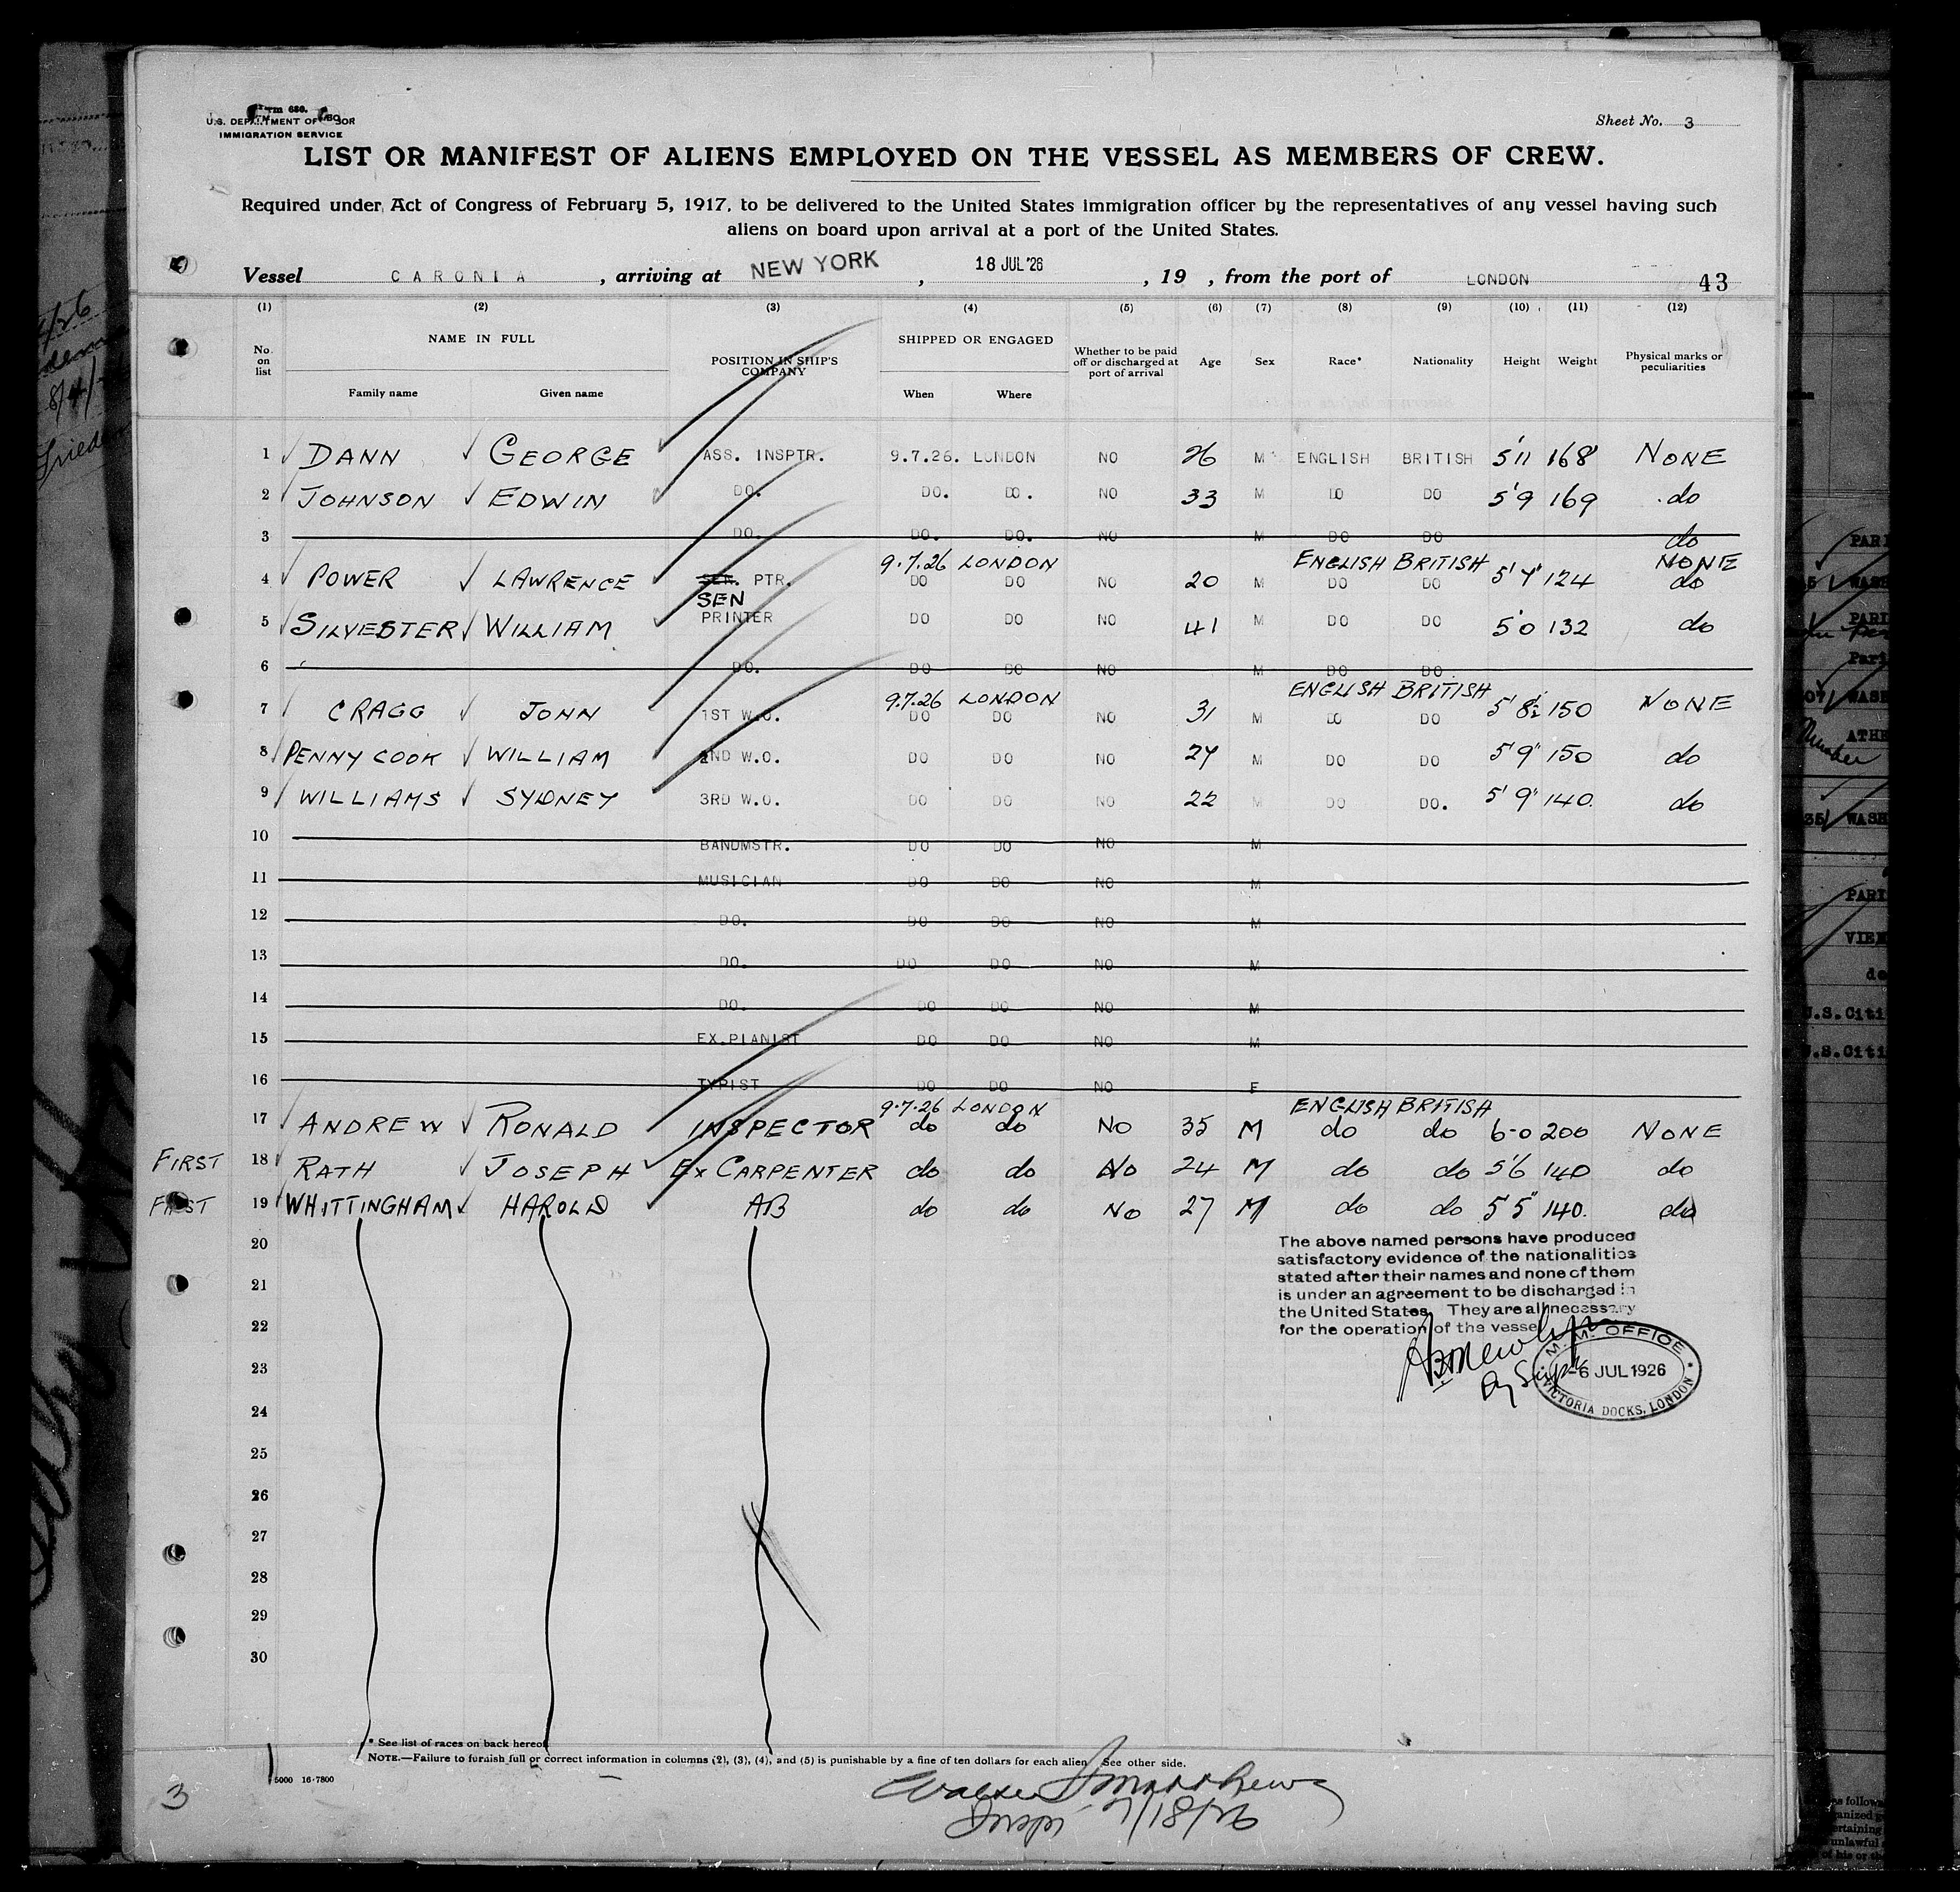 Form 680.
U.S. DEPARTMENT OF LABOR
IMMIGRATION SERVICE
Sheet No. 3
LIST OR MANIFEST OF ALIENS EMPLOYED ON THE VESSEL AS MEMBERS OF CREW.
Required under Act of Congress of February 5, 1917, to be delivered to the United States immigration officer by the representatives of any vessel having such
aliens on board upon arrival at a port of the United States.
Vessel CARONIA, arriving at NEW YORK, 18 JUL '26, 19 , from the port of LONDON 43
(1) (2) (3) (4) (5) (6) (7) (8) (9) (10) (11) (12)
No. on list NAME IN FULL Family name Given name POSITION IN SHIP'S COMPANY SHIPPED OR ENGAGED When Where Whether to be paid off or discharged at port of arrival Age Sex Race* Nationality Height Weight Physical marks or peculiarities
1 DANN GEORGE ASS. INSPTR. 9.7.26. LONDON NO 26 M ENGLISH BRITISH 5'11 168 NONE
2 JOHNSON EDWIN DO. DO. DO. NO 33 M DO DO 5'9 169 do
3 DO. DO. DO. NO M DO DO do
9.7.26 LONDON ENGLISH BRITISH NONE
4 POWER LAWRENCE SEN. PTR. DO DO NO 20 M DO DO 5'7" 124 do
SEN
5 SILVESTER WILLIAM PRINTER DO DO NO 41 M DO DO 5'0 132 do
6 DO. DO DO NO M DO DO
9.7.26 LONDON ENGLISH BRITISH
7 CRAGG JOHN 1ST W.O. DO DO NO 31 M DO DO 5'8½ 150 NONE
8 PENNYCOOK WILLIAM 2ND W.O. DO DO NO 27 M DO DO 5'9" 150 do
9 WILLIAMS SYDNEY 3RD W.O. DO DO NO 22 M DO DO. 5'9" 140. do
10 BANDMSTR. DO DO NO M
11 MUSICIAN DO DO NO M
12 DO. DO DO NO M
13 DO. DO DO NO M
14 DO. DO DO NO M
15 EX.PIANIST DO DO NO M
16 TYPIST DO DO NO F
9.7.26 LONDON ENGLISH BRITISH
17 ANDREW RONALD INSPECTOR do do NO 35 M do do 6-0 200 NONE
FIRST 18 RATH JOSEPH EX CARPENTER do do NO 24 M do do 5'6 140 do
FIRST 19 WHITTINGHAM HAROLD AB do do NO 27 M do do 5'5" 140. do
20
The above named persons have produced
satisfactory evidence of the nationalities
stated after their names and none of them
is under an agreement to be discharged in
the United States. They are all necessary
for the operation of the vessel
21
22
23
24
25
26
27
28
29
30
M.M. OFFICE
-6 JUL 1926
VICTORIA DOCKS, LONDON
* See list of races on back hereof
NOTE.—Failure to furnish full or correct information in columns (2), (3), (4), and (5) is punishable by a fine of ten dollars for each alien. See other side.
5000 16-7800
3
Walter Matthews
Insp. 7/18/26